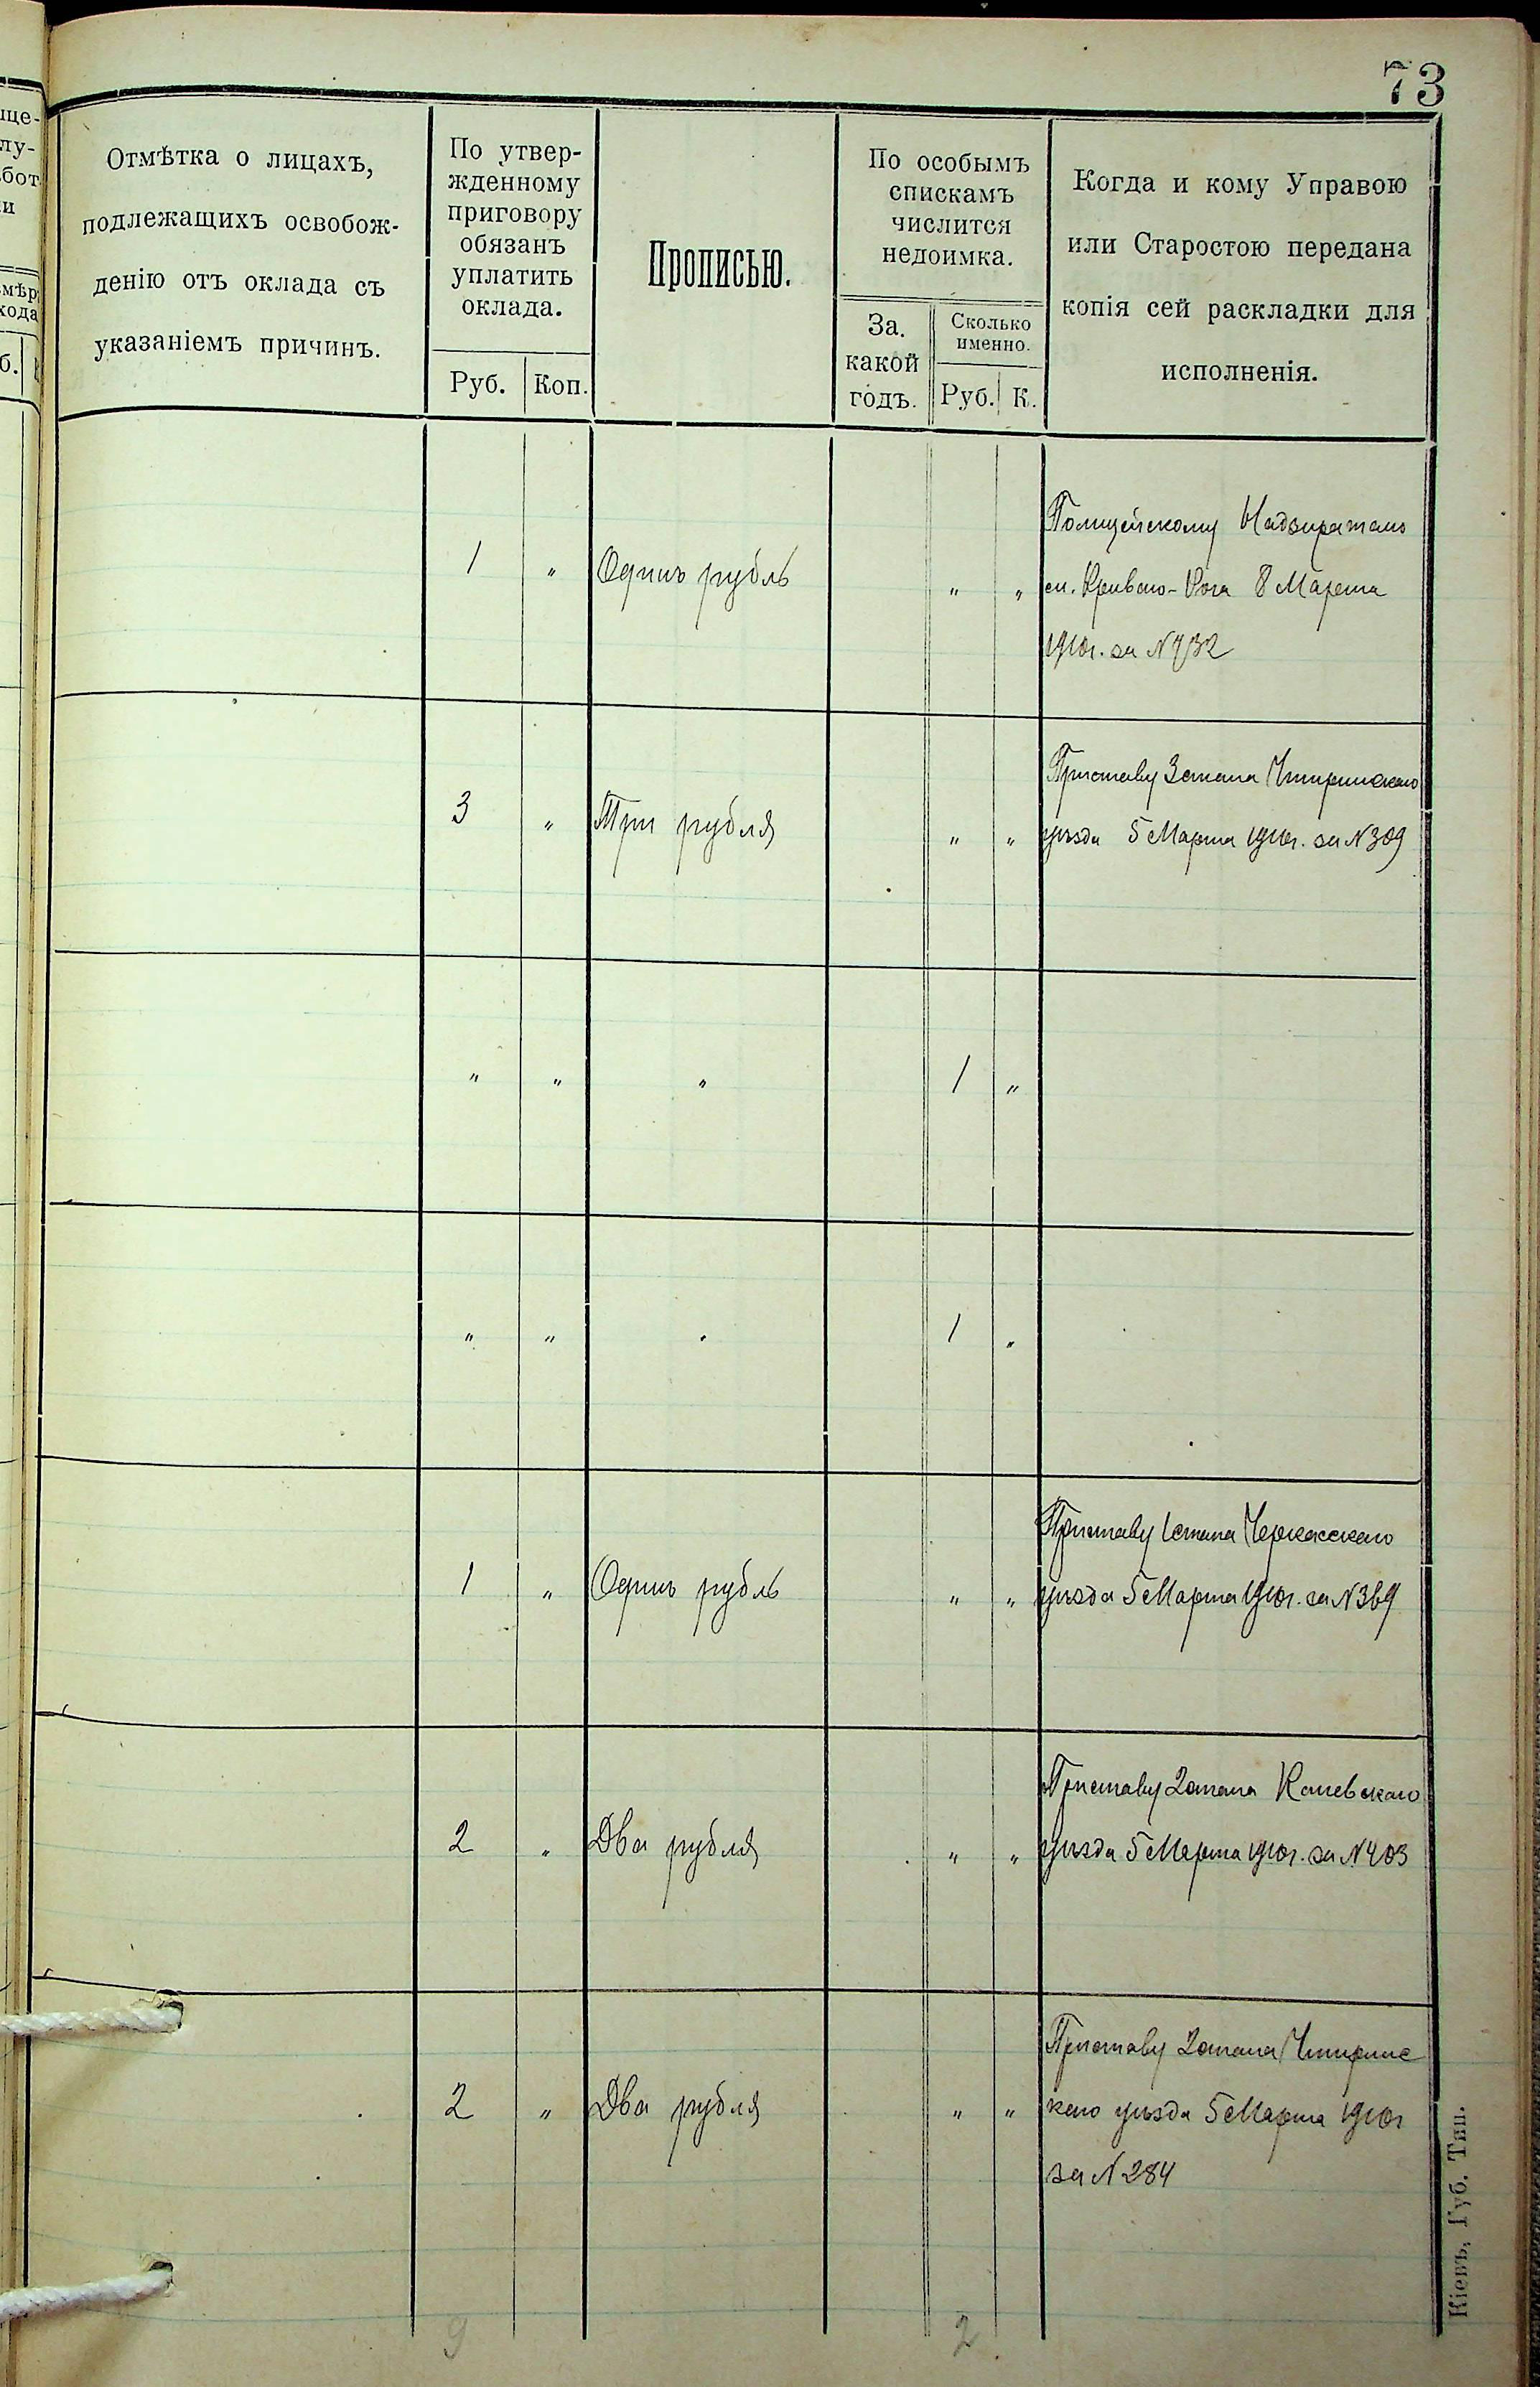 73
Отмѣтка о лицахъ,
подлежащихъ освобож-
денію отъ оклада съ
указаніемъ причинъ.
По утвер-
жденному
приговору
обязанъ
уплатить
оклада.
Руб. Коп.
Прописью.
По особымъ
спискамъ
числится
недоимка.
За.
какой
годъ.
Сколько
именно.
Руб. К.
Когда и кому Управою
или Старостою передана
копія сей раскладки для
исполненія.
1 " Одинъ рубль " "
Полицейскому Надзирателю
м. Кривого-Рога 8 Марта
1910г. за N 732
3 " Три рубля " "
Приставу 3 стана Чигиринскаго
уѣзда 5 Марта 1910г. за N 309
" " " 1 "
" " " 1 "
1 " Одинъ рубль " "
Приставу 1 стана Черкасскаго
уѣзда 5 Марта 1910г. за N 369
2 " Два рубля " "
Приставу 2 стана Каневскаго
уѣзда 5 Марта 1910г. за N 403
2 " Два рубля " "
Приставу 2 стана Чигиринс
каго уѣзда 5 Марта 1910г
за N 284
9 2
Кіевъ, Губ. Тип.